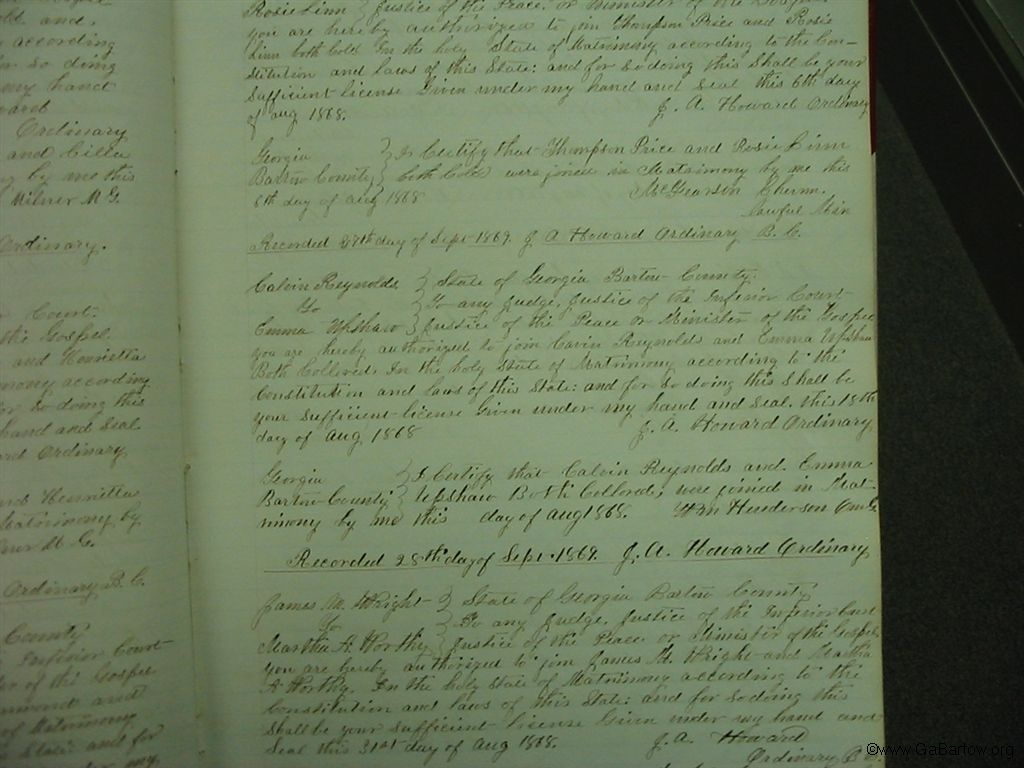 old and
according
for so doing
my hand
Howard
Ordinary
and Cilla
by me this
Milner M G.
Ordinary.
Court:
the Gospel.
and Henrietta
mony according
for so doing this
hand and seal
Ordinary
Henrietta
Matrimony by
M. G.
Ordinary B. C.
County
Inferior Court
of the Gospel
and
of Matrimony
State: and for
Rosie Linn } Justice of the Peace. or Minister of the Gospel
you are hereby authorized to join Thompson Price and Rosie
Linn both Cold In the holy State of Matrimony according to the Con-
stitution and laws of this State: and for so doing this Shall be your
Sufficient license Given under my hand and Seal this 6th day
of aug 1868. J. A. Howard Ordinary
Georgia } I Certify that Thompson Price and Rosie Linn
Bartow County } both Cold were joined in Matrimony by me this
6th day of aug 1868 McGearson Sherm.
lawful Min
Recorded 27th day of Sept 1869. J A Howard Ordinary B. C.
Calvin Reynolds } State of Georgia Bartow County.
To } To any Judge, Justice of the Inferior Court
Emma Upshaw } Justice of the Peace or Minister of the Gospel
you are hereby authorized to join Cavin Reynolds and Emma Upshaw
Both Collored. In the holy State of Matrimony according to the
Constitution and laws of this State: and for So doing this Shall be
your Sufficient license Given under my hand and Seal. this 15th
day of Aug 1868 J. A. Howard Ordinary,
Georgia } I Certify that Calvin Reynolds and Emma
Bartow County } Upshaw Both Collord; were joined in Mat-
rimony by me this day of Aug 1868. Wm Henderson O M G.
Recorded 28th day of Sept. 1869. J. A. Howard Ordinary
James M. Wright } State of Georgia Bartow County
To } To any Judge, Justice of the Inferior Court
Martha A Worthy } Justice of the Peace or Minister of the Gospel,
you are hereby authorized to join James M. Wright and Martha
A Worthy. In the holy State of Matrimony according to the
Constitution and laws of this State: and for So doing this
Shall be your Sufficient license Given under my hand and
Seal this 31st day of Aug 1868. J. A. Howard
Ordinary B C.
©www.GaBartow.org